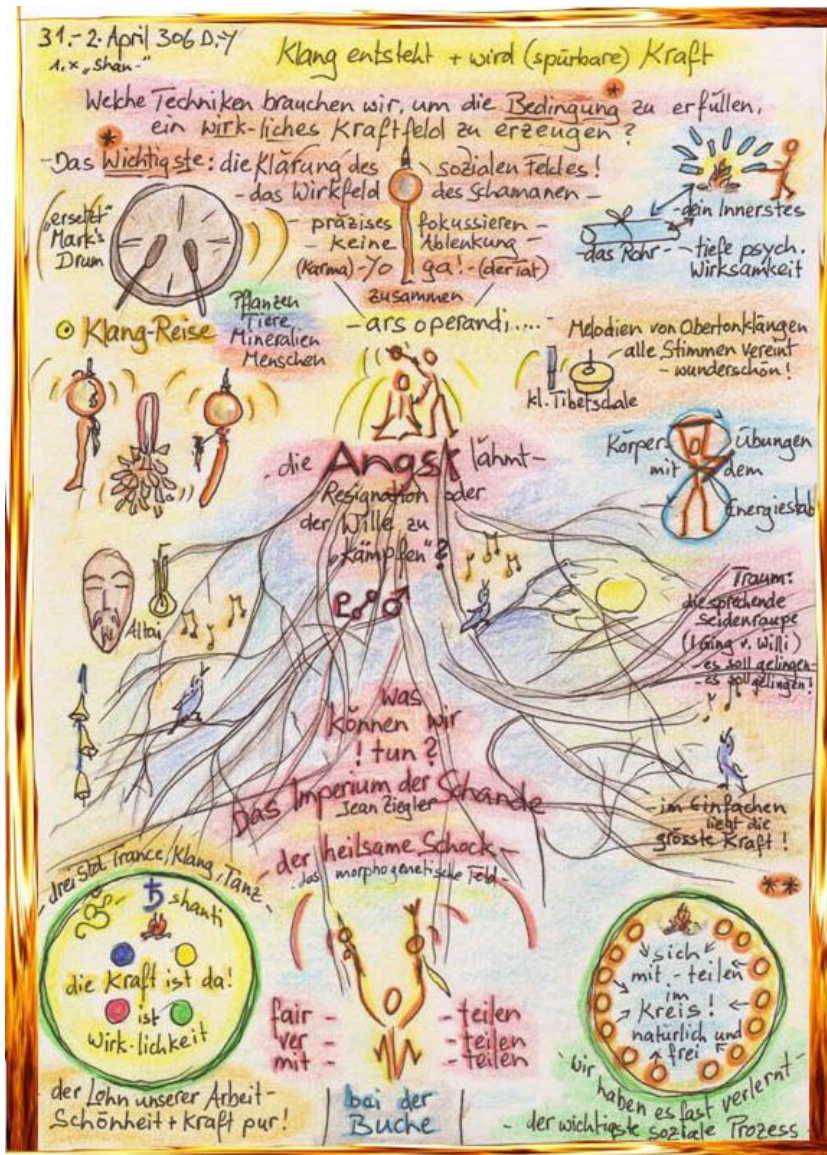 31.-2. April 306 D.Y
1.x „Shan-"
Klang entsteht + wird (spürbare) Kraft
Welche Techniken brauchen wir, um die Bedingung* zu erfüllen,
ein wirk-liches Kraftfeld zu erzeugen?
*
-Das Wichtigste: die Klärung des sozialen Feldes!
- das Wirkfeld des Schamanen -
präzises fokussieren -
- keine Ablenkung
(Karma) - Yo ga! - (der Tat)
zusammen
- ars operandi....
„ersetzt"
Mark's
Drum
- dein Innerstes
- das Rohr - tiefe psych.
Wirksamkeit
Pflanzen
Tiere
Mineralien
Menschen
Klang-Reise
Melodien von Obertonklängen
- alle Stimmen vereint
- wunderschön!
kl. Tibetschale
Körper Übungen
mit dem
Energiestab
- die Angst lähmt -
Resignation oder
der Wille zu
„kämpfen"?
Altai
Traum:
die sprechende
Seidenraupe
(I Ging v. Willi)
- es soll gelingen -
- es soll gelingen!
was
können wir
! tun?
Das Imperium der Schande
Jean Ziegler
- der heilsame Schock -
- das morphogenetische Feld -
- im Einfachen
liegt die
grösste Kraft!
**
- drei Std. Trance, Klang, Tanz -
shanti
die Kraft ist da!
ist
Wirk-lichkeit
der Lohn unserer Arbeit -
Schönheit + Kraft pur!
fair - - teilen
ver - - teilen
mit - - teilen
bei der
Buche
sich
mit - teilen
im
Kreis!
natürlich und
frei
- wir haben es fast verlernt -
- der wichtigste soziale Prozess -